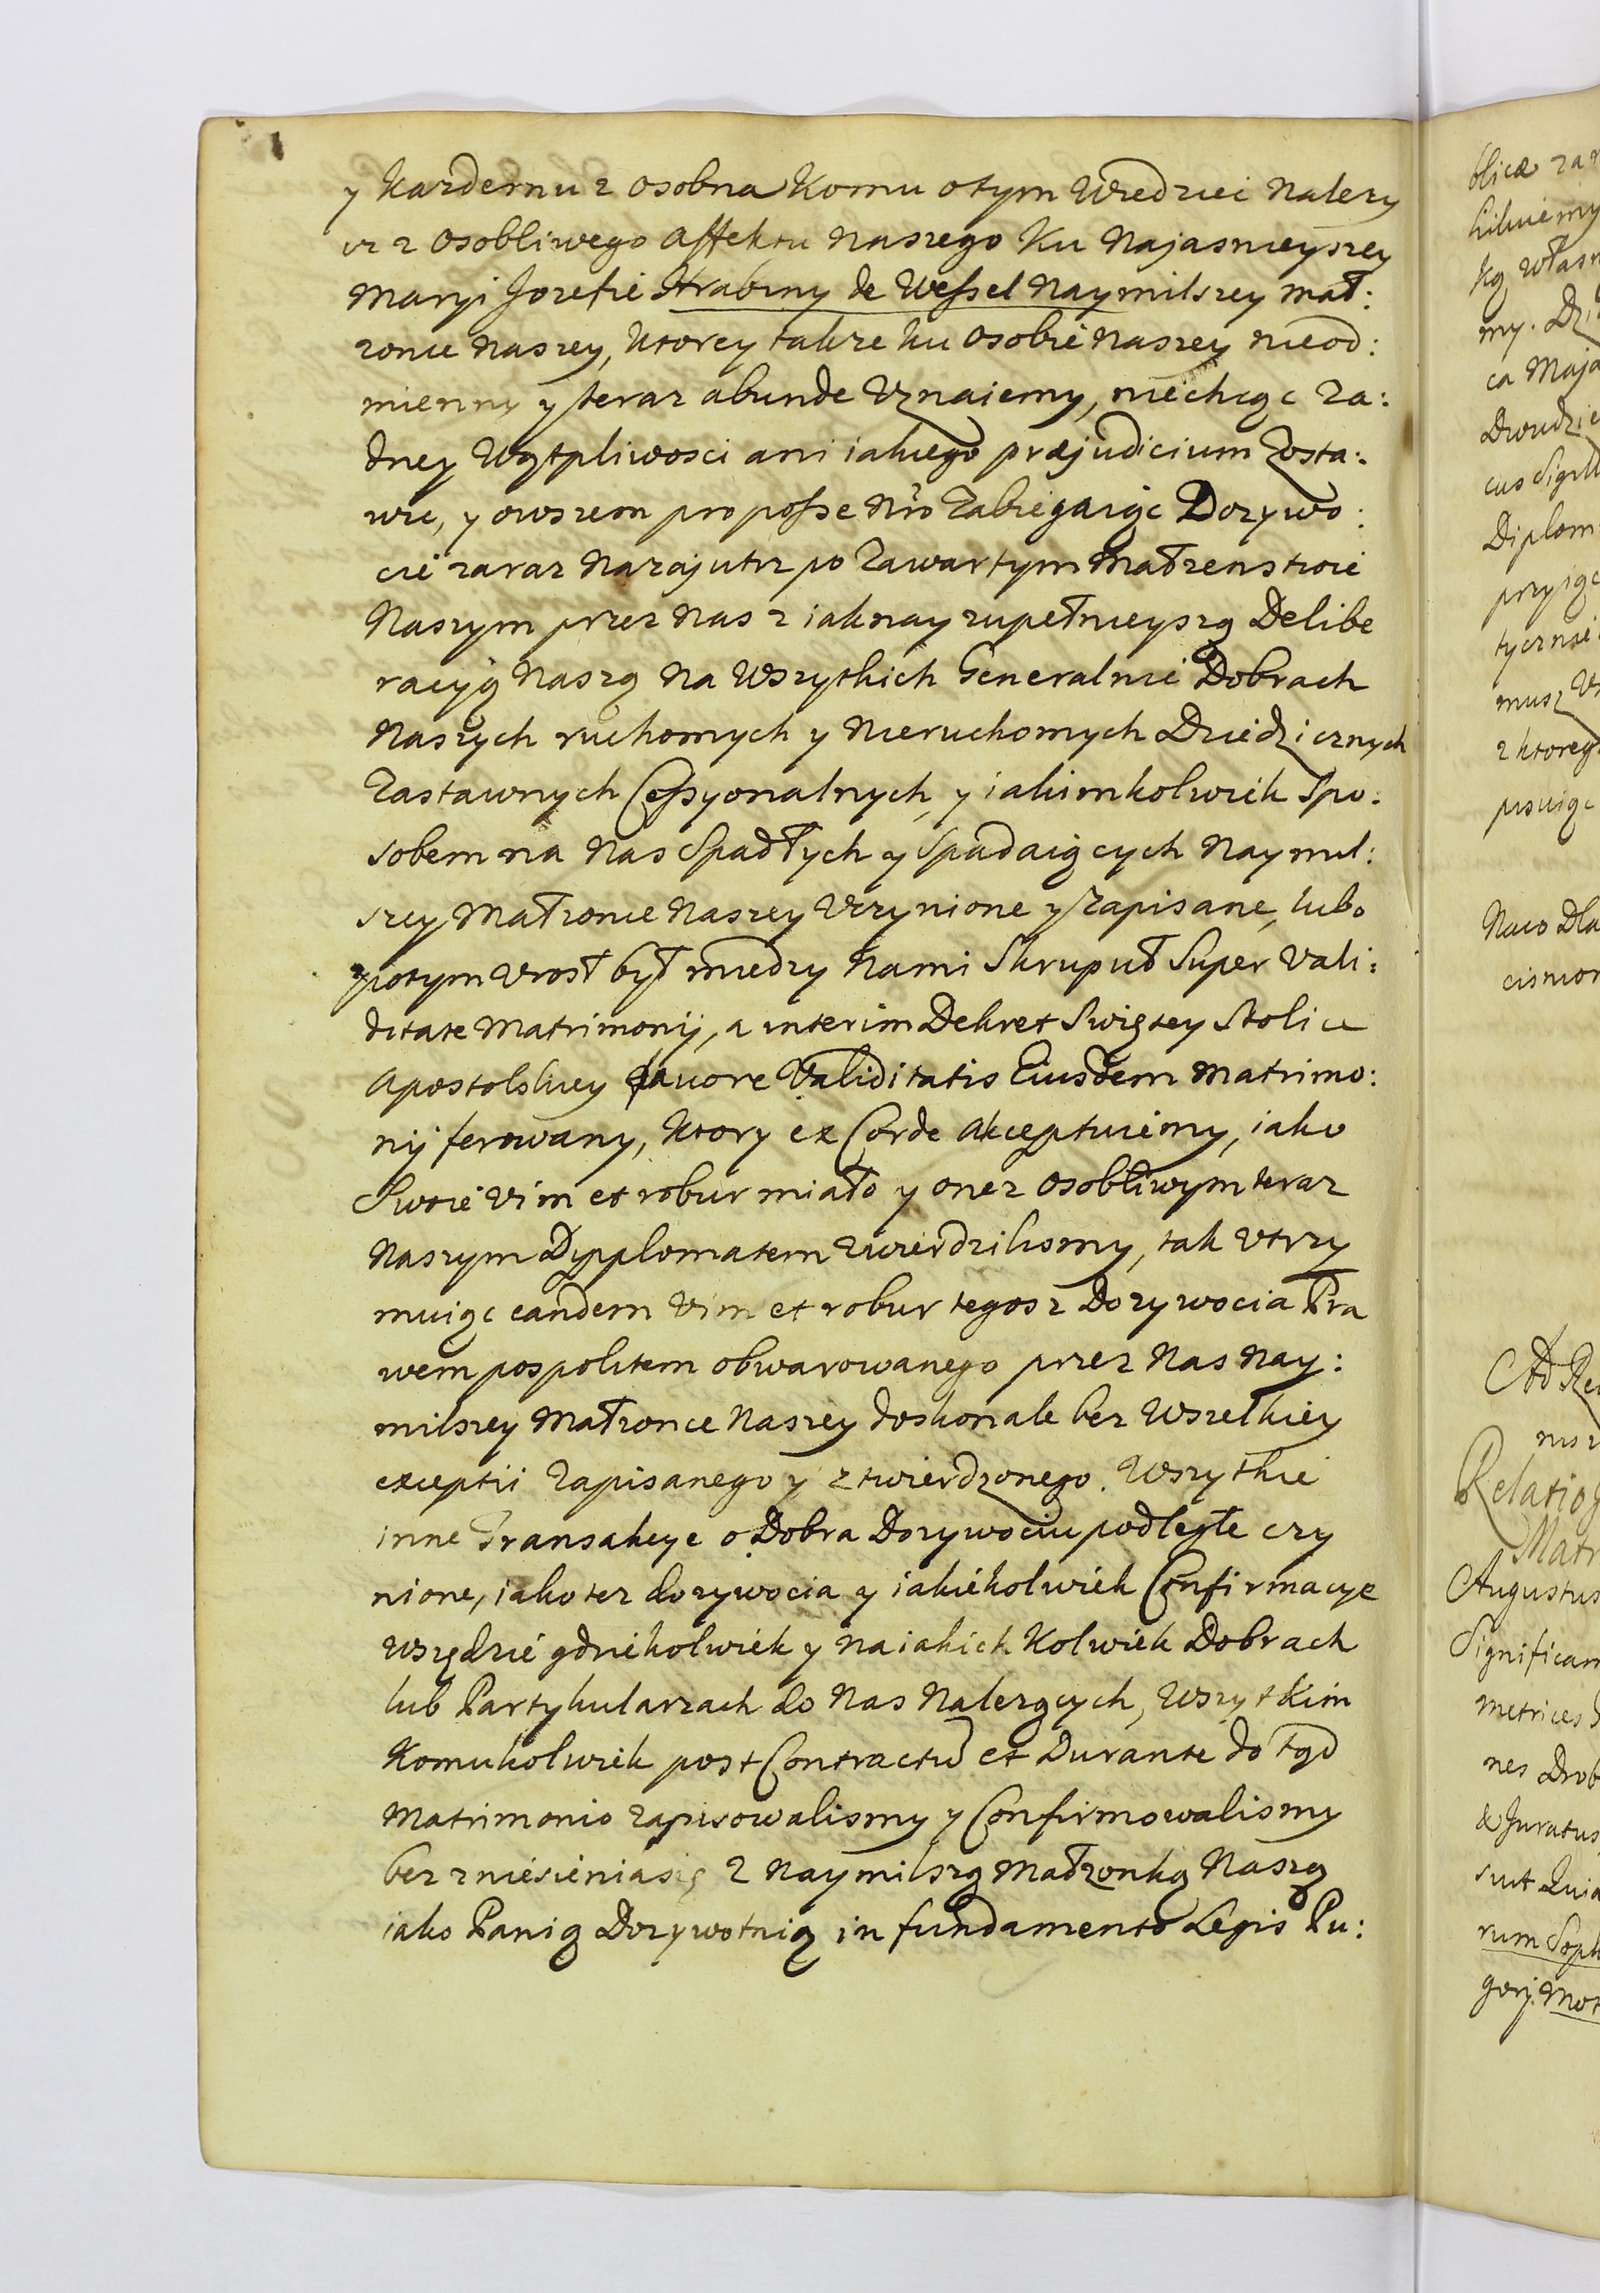 y kazdemu z osobna komu o tym Wiedziec Nalezy
iz z osobliwego affektu Naszego ku Najasnieyszey
Maryi Jozefie Hrabiny de Wessel Naymilszey Mał:
zonie Naszey, ktorey takze ku Osobie Naszey nieod:
mienny y teraz abunde Uznaiemy, niechcąc Za:
dney Wątpliwosci ani iakiego præjudicium Zosta:
wic, y owszem pro posse Nro Zabiegaiąc Dozywo:
cie zaraz Nazajutrz po Zawartym Małzenstwie
Naszym przez Nas z iaknayzupełnieyszą Delibe
racyją Naszą Na Wszytkich Generalnie Dobrach
Naszych ruchomych y Nieruchomych Dziedzicznych
Zastawnych Cessyonalnych, y iakimkolwiek Spo:
sobem na Nas Spadłych y Spadaiących Naymil:
szey Małzonie Naszey Uczynione y Zapisane, lubo
y potym Urosł był miedzy Nami Skrupuł Super Vali:
ditate Matrimonij, a interim Dekret Swiętey Stolice
Apostolskiey favore Validitatis Eiusdem Matrimo:
nij ferowany, ktory ex Corde akceptuiemy, iako
Swoie vim et robur miało y onez osobliwym teraz
Naszym Dypplomatem zwierdzilismy, tak Utrzy
muiąc eandem vim et robur tegosz Dozywocia Pra
wem pospolitem obwarowanego przez Nas Nay:
milszey Małzonce Naszey doskonale bez Wszelkiey
exceptii Zapisanego y ztwierdzonego. Wszytkie
inne Transakcye o Dobra Dozywociu podległe czy
nione, iako tez dozywocia y iakiekolwiek Confirmacye
wszędzie gdziekolwiek y na iakich Kolwiek Dobrach
lub Partykularzach do Nas Nalezących, Wszytkim
Komukolwiek post Contractu et Durante do tąd
Matrimonio zapisowalismy y Confirmowalismy
bez zniesienia się z Naymilszą Małzonką Naszą
iako Panią Dozywotnią in fundamento Legis Pu: